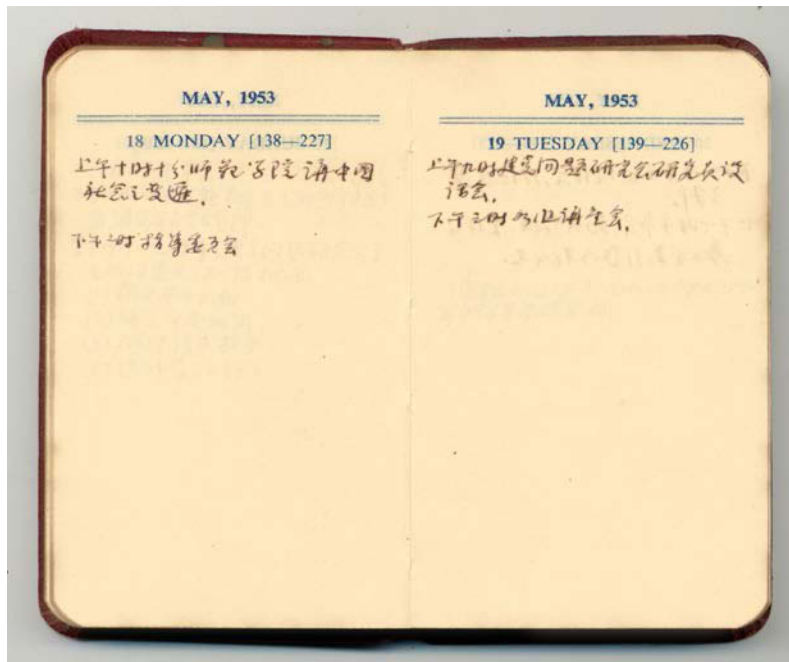 MAY, 1953
18 MONDAY [138—227]
上午十时十分师范学院讲中国
社会之变迁.
下午三时指导委员会
MAY, 1953
19 TUESDAY [139—226]
上午九时建党问题研究会研究员谈
话会.
下午三时 讲座会.